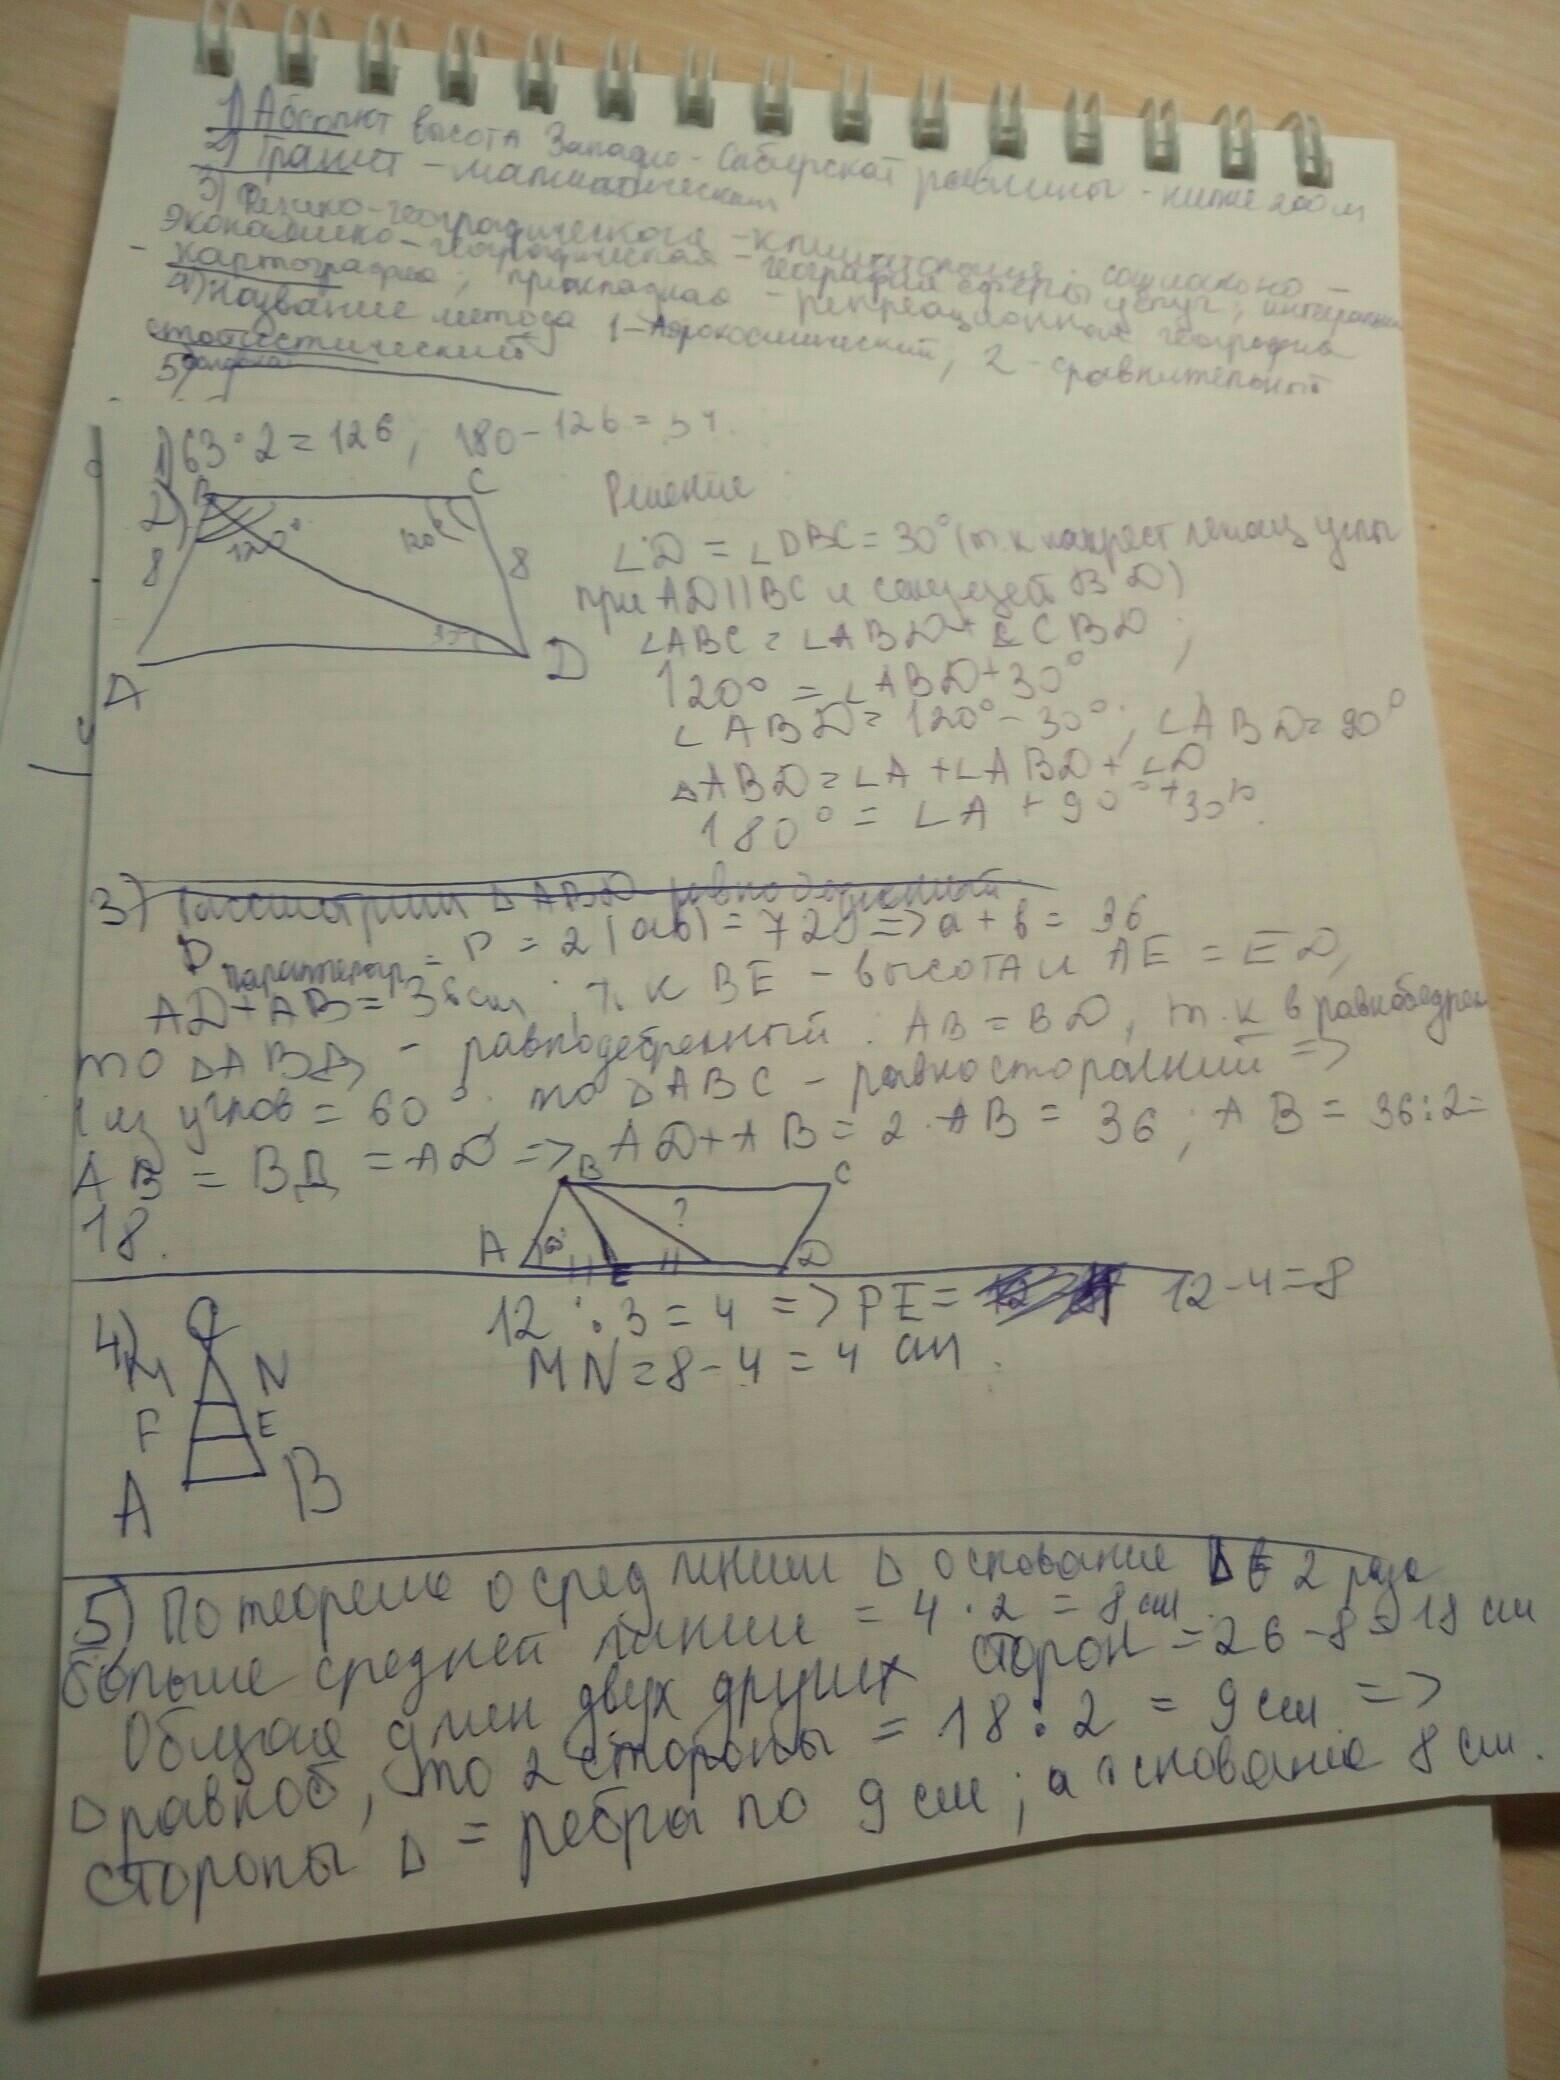 1) Абсолют высота Западно-Сибирской равнины - ниже 200 м
2) Гранит - магматический
3) Физико-географического - климатология; социально -
экономико-географическая - география сферы услуг; интегральная
- картография; прикладная - рекреационная география
4) Название метода 1-Аэрокосмический, 2 - сравнительный
статистический
5)
1) 63·2=126, 180-126=54.
2)
B C
120° 120°
8 8
A D
Решение
∠D = ∠DBC = 30° (т.к накрест лежащ углы
при AD||BC и секущей BD)
∠ABC = ∠ABD + ∠CBD;
120° = ∠ABD + 30°
∠ABD = 120° - 30°; ∠ABD = 90°
△ABD = ∠A + ∠ABD + ∠D
180° = ∠A + 90° + 30°.
3) Рассмотрим △ABD равнобедренный
P параллелогр = P = 2(ab) = 72 => a + b = 36
AD + AB = 36 см; т.к BE - высота и AE = ED,
то △ABD - равнобедренный: AB = BD, т.к в равнобедрен
1 из углов = 60°. то △ABC - равносторонний =>
AB = BД = AD => AD + AB = 2·AB = 36; AB = 36:2=
18.
B C
60° ?
A E D
4)
C
M N
F E
A B
12 : 3 = 4 => PE = 12-4=8
MN = 8-4 = 4 см.
5) По теореме о сред линии △ основание △ в 2 раза
больше средней линии = 4·2 = 8 см.
Общая длин двух других сторон = 26-8=18 см
△ равноб, то 2 стороны = 18:2 = 9 см =>
стороны △ = ребра по 9 см; а основание 8 см.